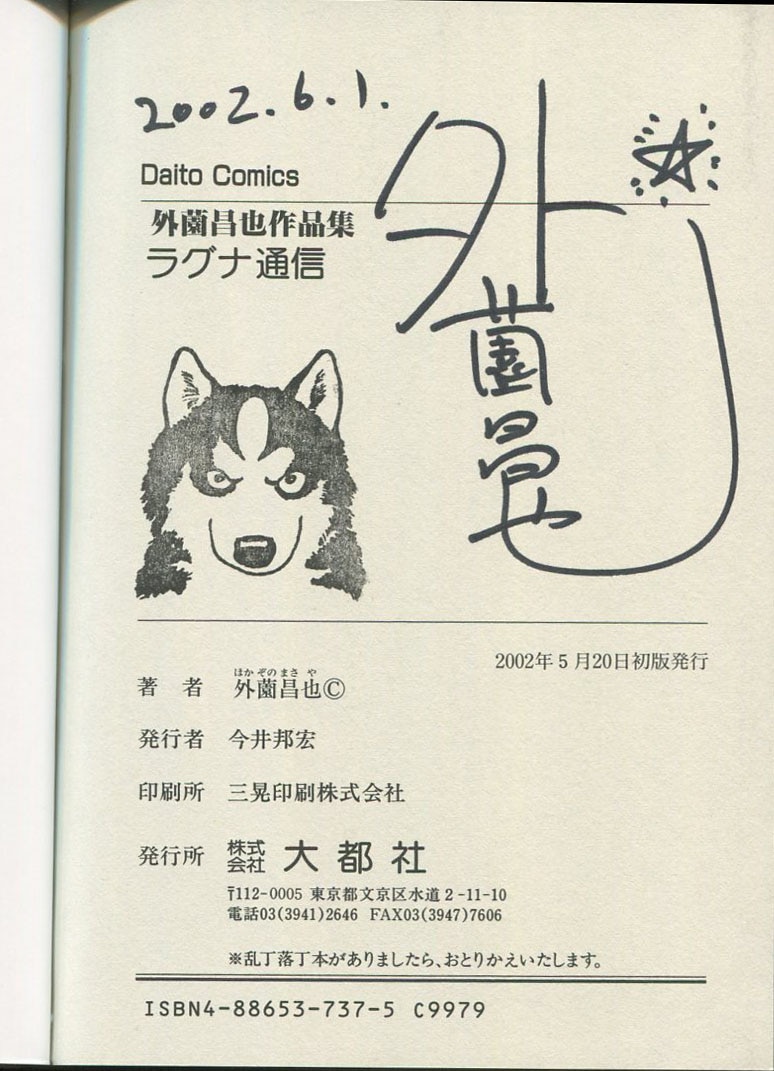 2002.6.1.
Daito Comics
外薗昌也作品集
ラグナ通信
外薗昌也
2002年5月20日初版発行
ほかぞのまさや
著者 外薗昌也©
発行者 今井邦宏
印刷所 三晃印刷株式会社
発行所 株式会社 大都社
〒112-0005 東京都文京区水道2-11-10
電話03(3941)2646 FAX03(3947)7606
※乱丁落丁本がありましたら、おとりかえいたします。
ISBN4-88653-737-5 C9979